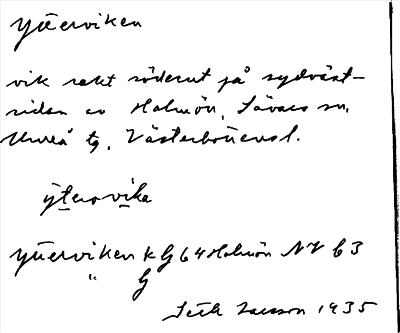 Ytterviken
vik rakt söderut på sydväst-
sidan av Holmön, Sävars sn.
Umeå tg, Västerbottens l.
ỳterovika
Ytterviken k G 64 Holmön NV b3
" G
Seth Larsson 1935